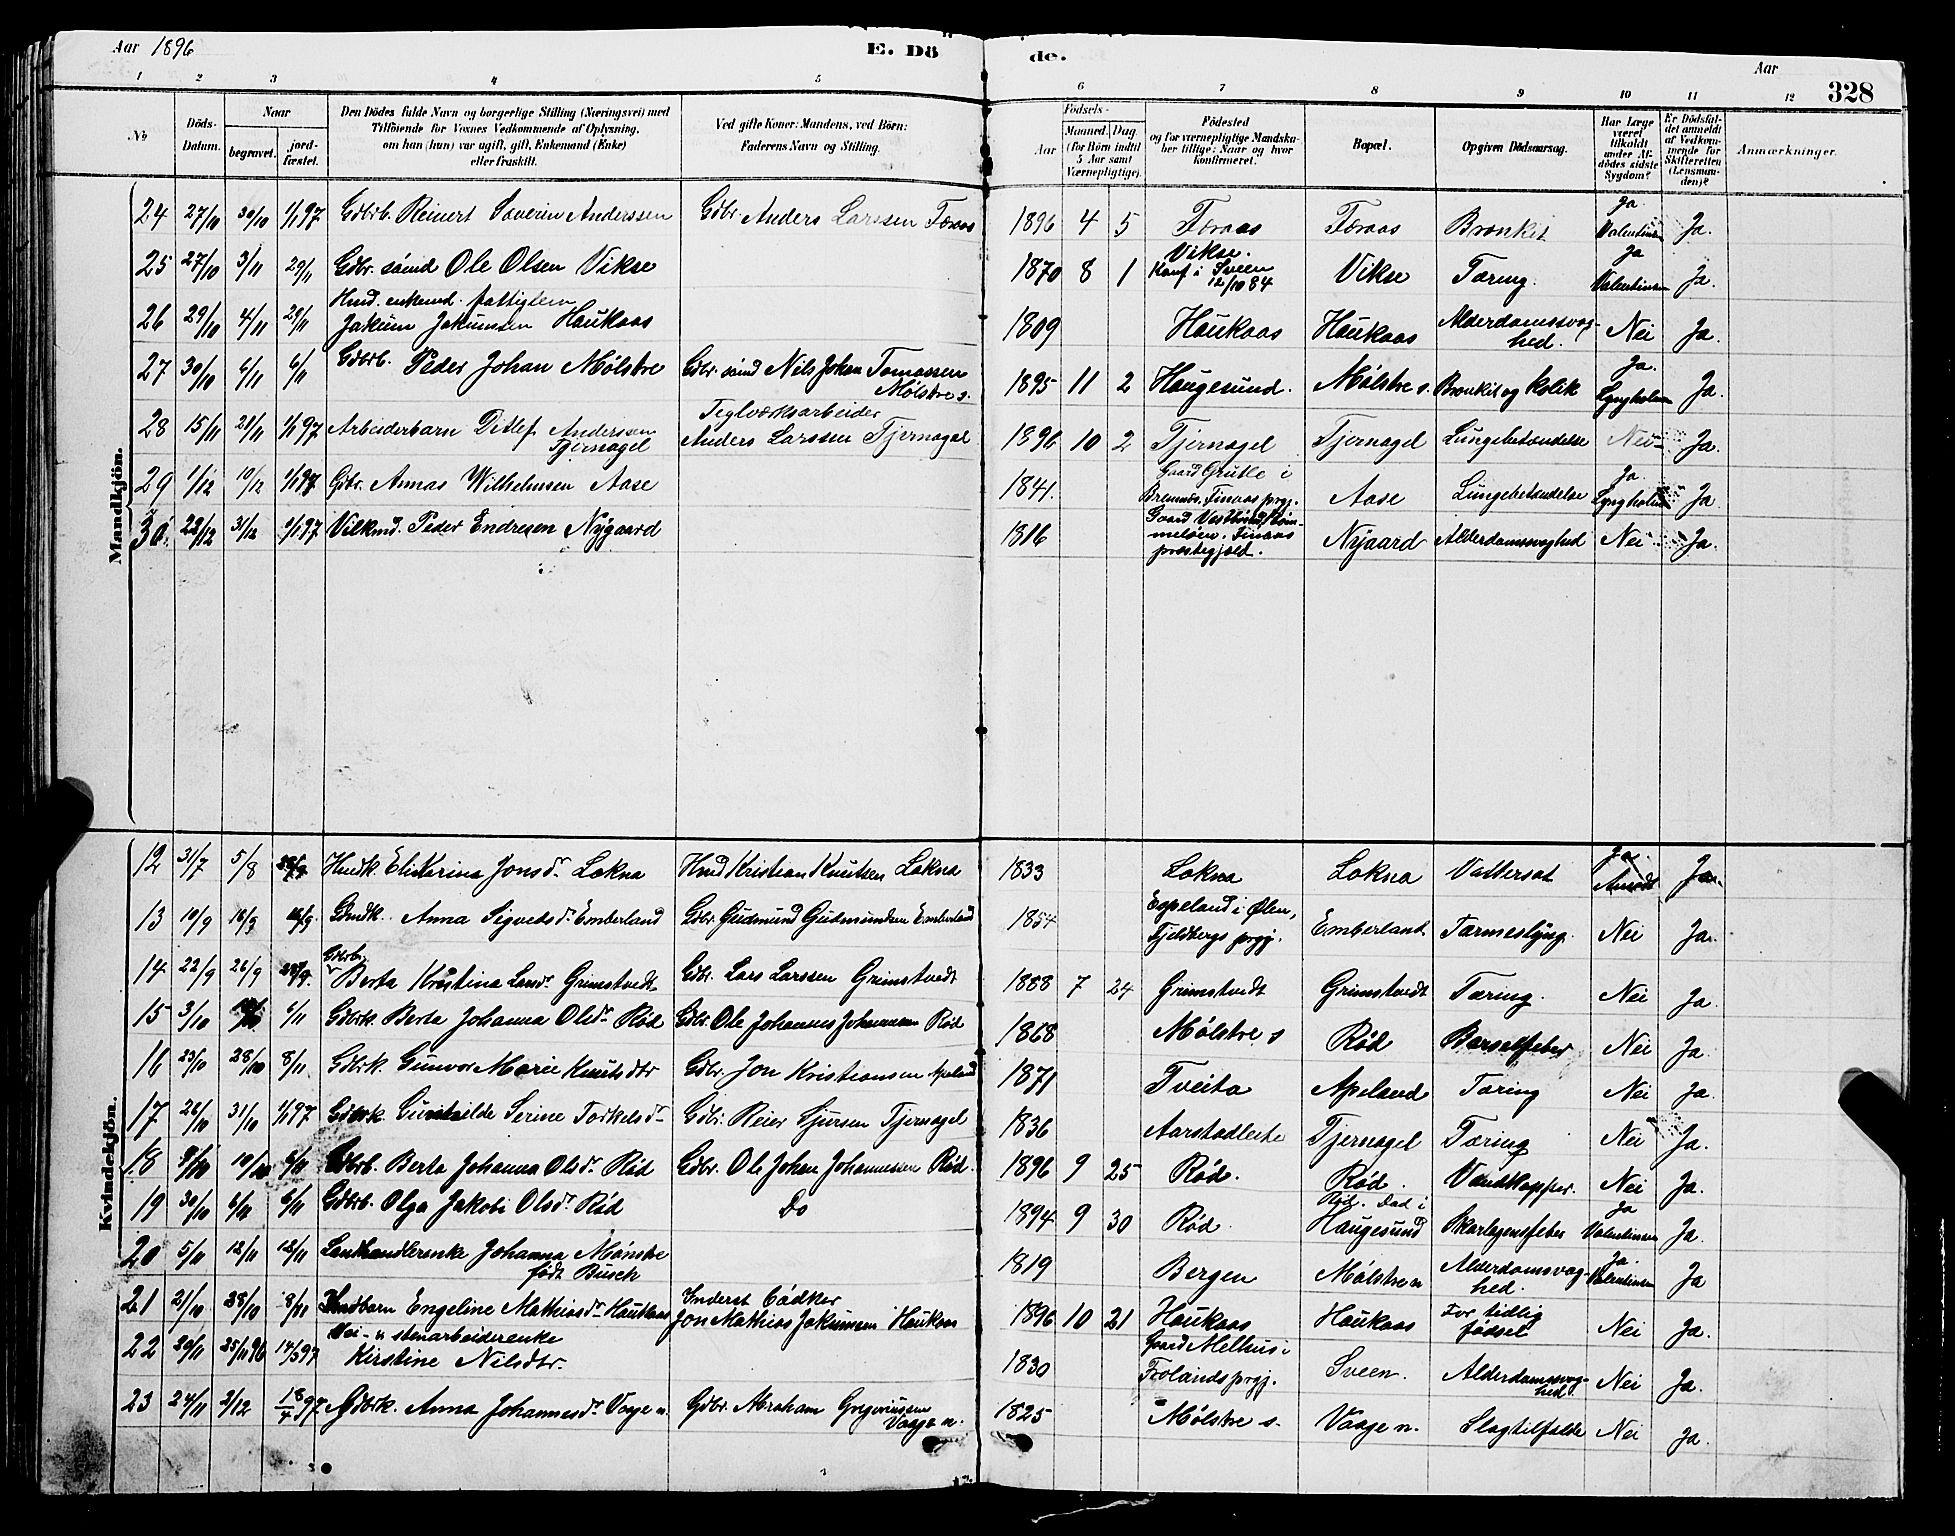 Aar 1896 E. Dö de. Aar 328
1 2 3 4 5 6 7 8 9 10 11 12
No Döds-Datum. Naar begravet. jordfæstet. Den Dödes fulde Navn og borgerlige Stilling (Næringsvei) med Tilföiende for Voxnes Vedkommende af Oplysning, om han (hun) var ugift, gift, Enkemand (Enke) eller fraskilt. Ved gifte Koner: Mandens, ved Börn: Faderens Navn og Stilling. Födsels- Aar Maaned. Dag. (for Börn indtil 5 Aar samt Værnepligtige). Födested og for værnepligtige Mandskaber tillige: Naar og hvor konfirmeret. Bopæl. Opgiven Dödsaarsag. Har Læge været tilkaldt under Afdödes sidste Sygdom? Er Dödsfaldet anmeldt af Vedkommende for Skifteretten (Lensmanden)? Anmærkninger.
Mandkjön.
24 27/10 30/10 1/1 97 Gdbrb. Reinert Severin Anderssen Gdbr. Anders Larssen Føraas 1896 4 5 Føraas Føraas Bronkit Ja Valentinsen Ja.
25 27/10 3/11 29/11 Gdbr. sønd Ole Olsen Vikse 1870 8 1 Vikse. Konf i Sveen 12/10 84 Vikse Tæring. Ja Valentinsen Ja.
26 29/10 4/11 29/11 Hmd. enkemd. fattiglem Jakum Jakumsen Haukaas 1809 Haukaas Haukaas Alderdomssvaghed. Nei Ja.
27 30/10 6/11 6/11 Gdbrb. Peder Johan Mølstre Gdbr. sønd Nils Johan Tomassen Mølstre s. 1895 11 2 Haugesund. Mølstre s. Bronkit og kolik Ja. Lyngholm Ja.
28 15/11 21/11 1/1 97 Arbeiderbarn Detlef Andersen Tjernagel Teglværksarbeider Anders Larssen Tjernagel 1896 10 2 Tjernagel Tjernagel Lungebetændelse Nei Ja.
29 1/12 10/12 1/1 97 Gbr. Annas Wilhelmsen Aase 1841. Gaard Grutle i Bremnes. Finaas prgj. Aase Lungebetændelse Ja. Lyngholm Ja
30 22/12 31/12 1/1 97 Vilkmd. Peder Endresen Nygaard 1816 Gaard Vestbøstad Bømmeløen. Finaas præstegjeld. Nygaard Alderdomssvaghed Nei Ja.
Kvindekjön.
12 31/7 5/8 Hmdk. Eli Karina Jonsdr. Løkna Hmd Kristian Knutsen Løkna 1833 Løkna Løkna Vattersot Ja Ja
13 10/9 16/9 Gmdk. Anna Sigvedsdr. Emberland Gdbr. Gudmund Gudmundsen Emberland 1854 Espeland i Ølen, Fjeldbergs prgj. Emberland Tarmeslyng. Nei Ja.
14 22/9 26/9 Gdbrb. Berta Kristina Larsdr. Grimstvedt Gdbr. Lars Larssen Grimstvedt 1888 7 24 Grimstvedt Grimstvedt Tæring. Nei Ja.
15 3/10 6/11 Gdbrk. Berta Johanna Olsdr. Rød Gdbr. Ole Johannes Johannessen Rød 1868 Mølstre s Rød Barselfeber Nei Ja.
16 23/10 28/10 8/11 Gdbrk. Gunvor Marie Knutsdtr Gdbr. Jon Kristiansen Apeland 1871 Tveita Apeland Tæring Nei Ja.
17 26/10 31/10 1/1 97 Gdbrk Gunhilde Serine Torkelsdr. Gdbr. Reier Sjursen Tjernagel 1836 Aarstadleite Tjernagel Tæring Nei Ja.
18 10/10 6/11 Gdbrb. Berta Johanna Olsdr. Rød Gdbr. Ole Johan Johannessen Rød. 1896 9 25 Rød. Rød. Vandkopper. Nei Ja.
19 30/10 6/11 6/11 Gdbrb. Olga Jakobi Olsdr. Rød Do 1894 9 30 Rød Rød. Død i Haugesund Skarlagensfeber Ja Valentinsen Ja.
20 5/11 12/11 12/11 Landhandlerenke Johanna Mønstre født Busch 1819 Bergen Mølstre n Alderdomssvaghed. Ja. Valentinsen Ja
21 21/10 28/10 8/11 Hmdbarn Engeline Mathiasdr. Haukaas Inderst Bødker Jon Mathias Jakumsen Haukaas 1896 10 21 Haukaas Haukaas For tidlig fødsel Nei Ja.
22 20/11 25/11 96 14/3 97 Vei- n stenarbeiderenke Kirstine Nilsdtr. 1830 Gaard Melhus i Frolands prgj. Sveen. Alderdomssvaghed Nei Ja.
23 24/11 2/12 18/4 97 Gdbrk. Anna Johannesdr. Vaage n. Gdbr. Abraham Gregoriussen Vaage n. 1825 Mølstre s. Vaage n. Slagtilfælde Nei Ja.